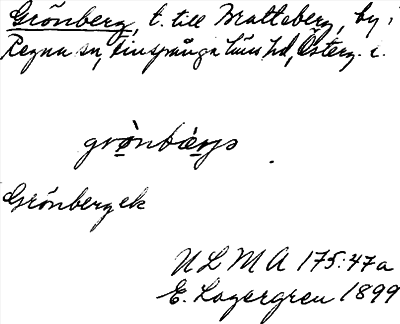 Grönberg, t. till Bralteberg, by i
Regna sn, Finspånga läns hd, Österg. l.
grònbærjs
Grönbergek
ULMA 175:47a
E. Lagergren 1899